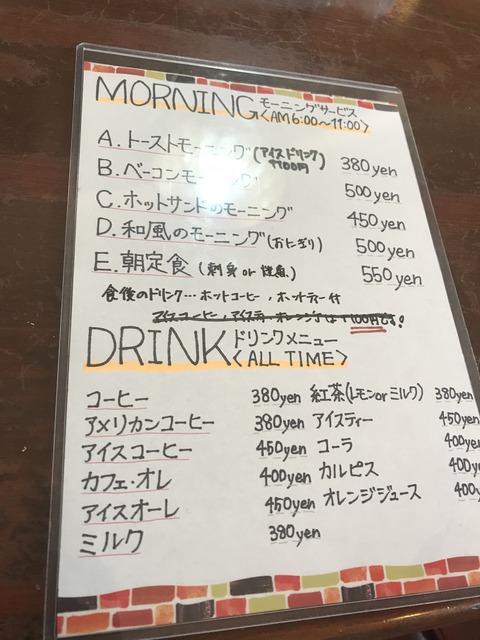 MORNING モーニングサービス
<AM6:00～11:00>
A.トーストモーニング(アイスドリンク 380yen
+100円)
B.ベーコンモーニング 500yen
C.ホットサンドのモーニング 450yen
D.和風のモーニング(おにぎり) 500yen
E.朝定食 (刺身 or 焼魚) 550yen
食後のドリンク…ホットコーヒー,ホットティー付
アイスコーヒー,アイスティ・オレンジJは+100円です!
DRINK ドリンクメニュー
<ALL TIME>
コーヒー 380yen 紅茶(レモンorミルク) 380yen
アメリカンコーヒー 380yen アイスティー 450yen
アイスコーヒー 450yen コーラ 400yen
カフェ・オレ 400yen カルピス 400y
アイスオーレ 450yen オレンジジュース 400y
ミルク 380yen